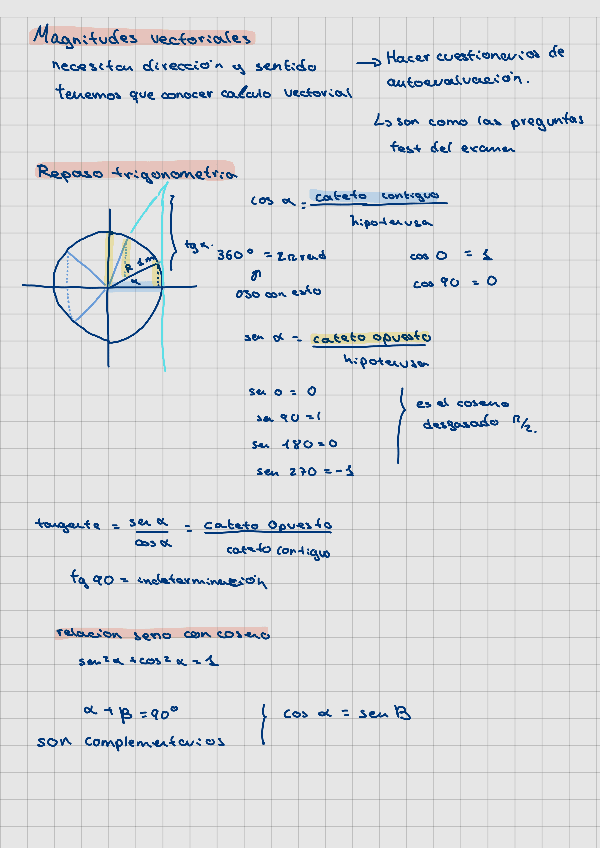 Magnitudes vectoriales
necesitan dirección y sentido
tenemos que conocer calculo vectorial
→ Hacer cuestionarios de
autoevaluación.
↳ son como las preguntas
test del examen
Repaso trigonometria
cos α = cateto contiguo
hipotenusa
tg α.
R 1m
α
360° = 2π rad
ojo con esto
cos 0 = 1
cos 90 = 0
sen α = cateto opuesto
hipotenusa
sen 0 = 0
sen 90 = 1
sen 180 = 0
sen 270 = -1
es el coseno
desfasado π/2.
tangente = sen α / cos α = cateto opuesto
cateto contiguo
tg 90 = indeterminación
relacion seno con coseno
sen² α + cos² α = 1
α + β = 90°
son complementarios
cos α = sen β